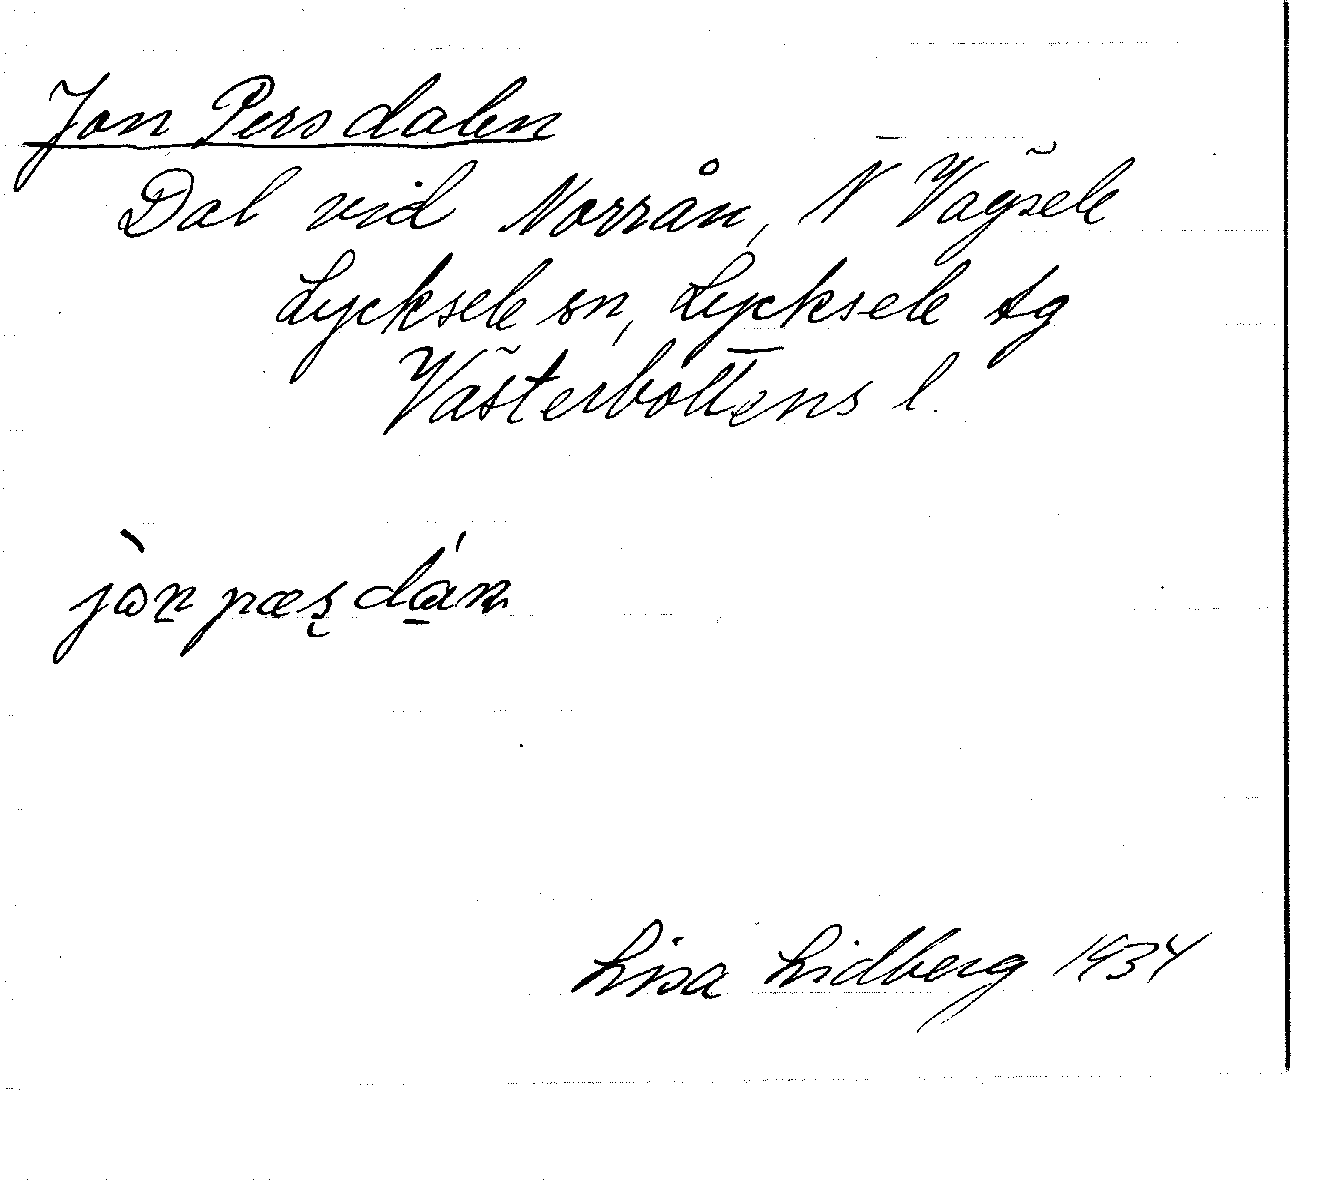 Jon Persdalen
Dal vid Norrån, N Vägsele
Lycksele sn, Lycksele tg
Västerbottens l.
Lisa Lidberg 1934